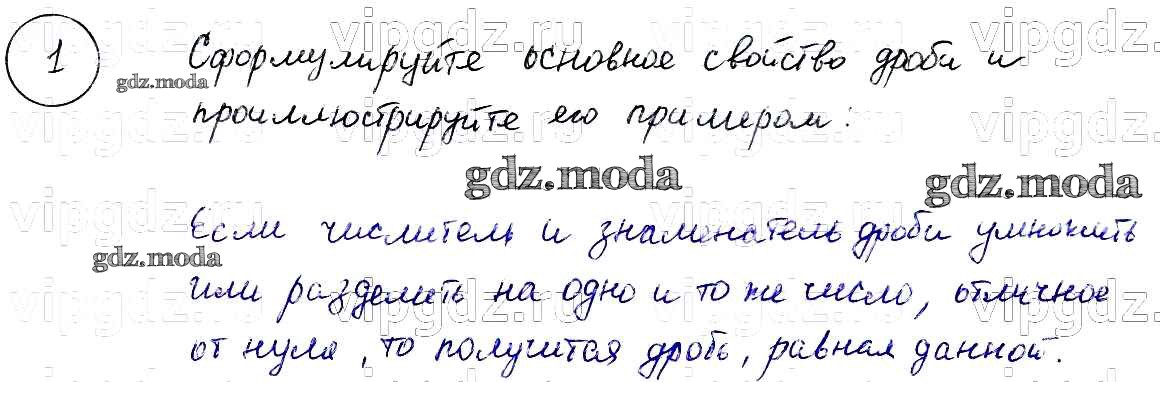 1
Сформулируйте основное свойство дроби и
проиллюстрируйте его примером:
Если числитель и знаменатель дроби умножить
или разделить на одно и то же число, отличное
от нуля, то получится дробь, равная данной.
gdz.moda
gdz.moda
gdz.moda
gdz.moda
vipgdz.ru